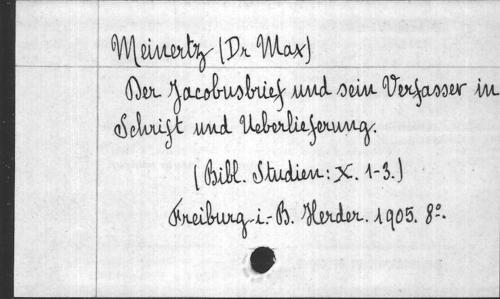 Meinertz (Dr Max)
Der Jacobusbrief und sein Verfasser in
Schrift und Ueberlieferung.
(Bibl. Studien: X. 1-3.)
Freiburg-i.-B. Herder. 1905. 8º.